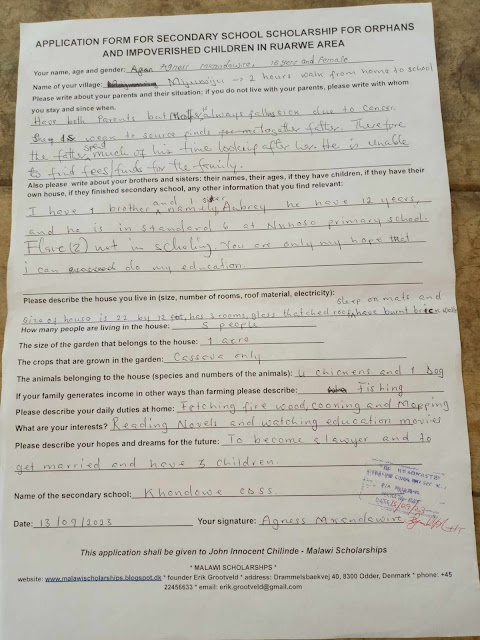 APPLICATION FORM FOR SECONDARY SCHOOL SCHOLARSHIP FOR ORPHANS
AND IMPOVERISHED CHILDREN IN RUARWE AREA
Your name, age and gender: Agness Mkandawire, 18 years and Female
Name of your village: 2 hours walk from home to school
Please write about your parents and their situation; if you do not live with your parents, please write with whom
you stay and since when.
Have both Parents but Mother always falls sick due to Cancer.
She is weak to source funds together father. Therefore
the father spend much of his time looking after her. He is unable
to find fees/funds for the family.
Also please write about your brothers and sisters: their names, their ages, if they have children, if they have their
own house, if they finished secondary school, any other information that you find relevant:
I have 1 brother and 1 sister namely Aubrey he have 12 years,
and he is in standard 6 at primary school.
(2) not in schooling. You are only my hope that
i can do my education.
Please describe the house you live in (size, number of rooms, roof material, electricity): sleep on mats and
size of house is 22 by 12 feet, has 3 rooms, glass thatched roof, have burnt bricks
How many people are living in the house: 5 people
The size of the garden that belongs to the house: 1 acre
The crops that are grown in the garden: Casseva only
The animals belonging to the house (species and numbers of the animals): 4 chickens and 1 dog
If your family generates income in other ways than farming please describe: Fishing
Please describe your daily duties at home: Fetching fire wood, cooking and Mopping
What are your interests? Reading Novels and watching education movies
Please describe your hopes and dreams for the future: To become a lawyer and to
get married and have 3 children.
Name of the secondary school: Khondowe CDSS.
THE HEADMASTER
Date: 13/09/2023 Your signature: Agness Mkandawire
This application shall be given to John Innocent Chilinde - Malawi Scholarships
* MALAWI SCHOLARSHIPS *
website: www.malawischolarships.blogspot.dk * founder Erik Grootveld * address: Drammelsbaekvej 40, 8300 Odder, Denmark * phone: +45
22456633 * email: erik.grootveld@gmail.com